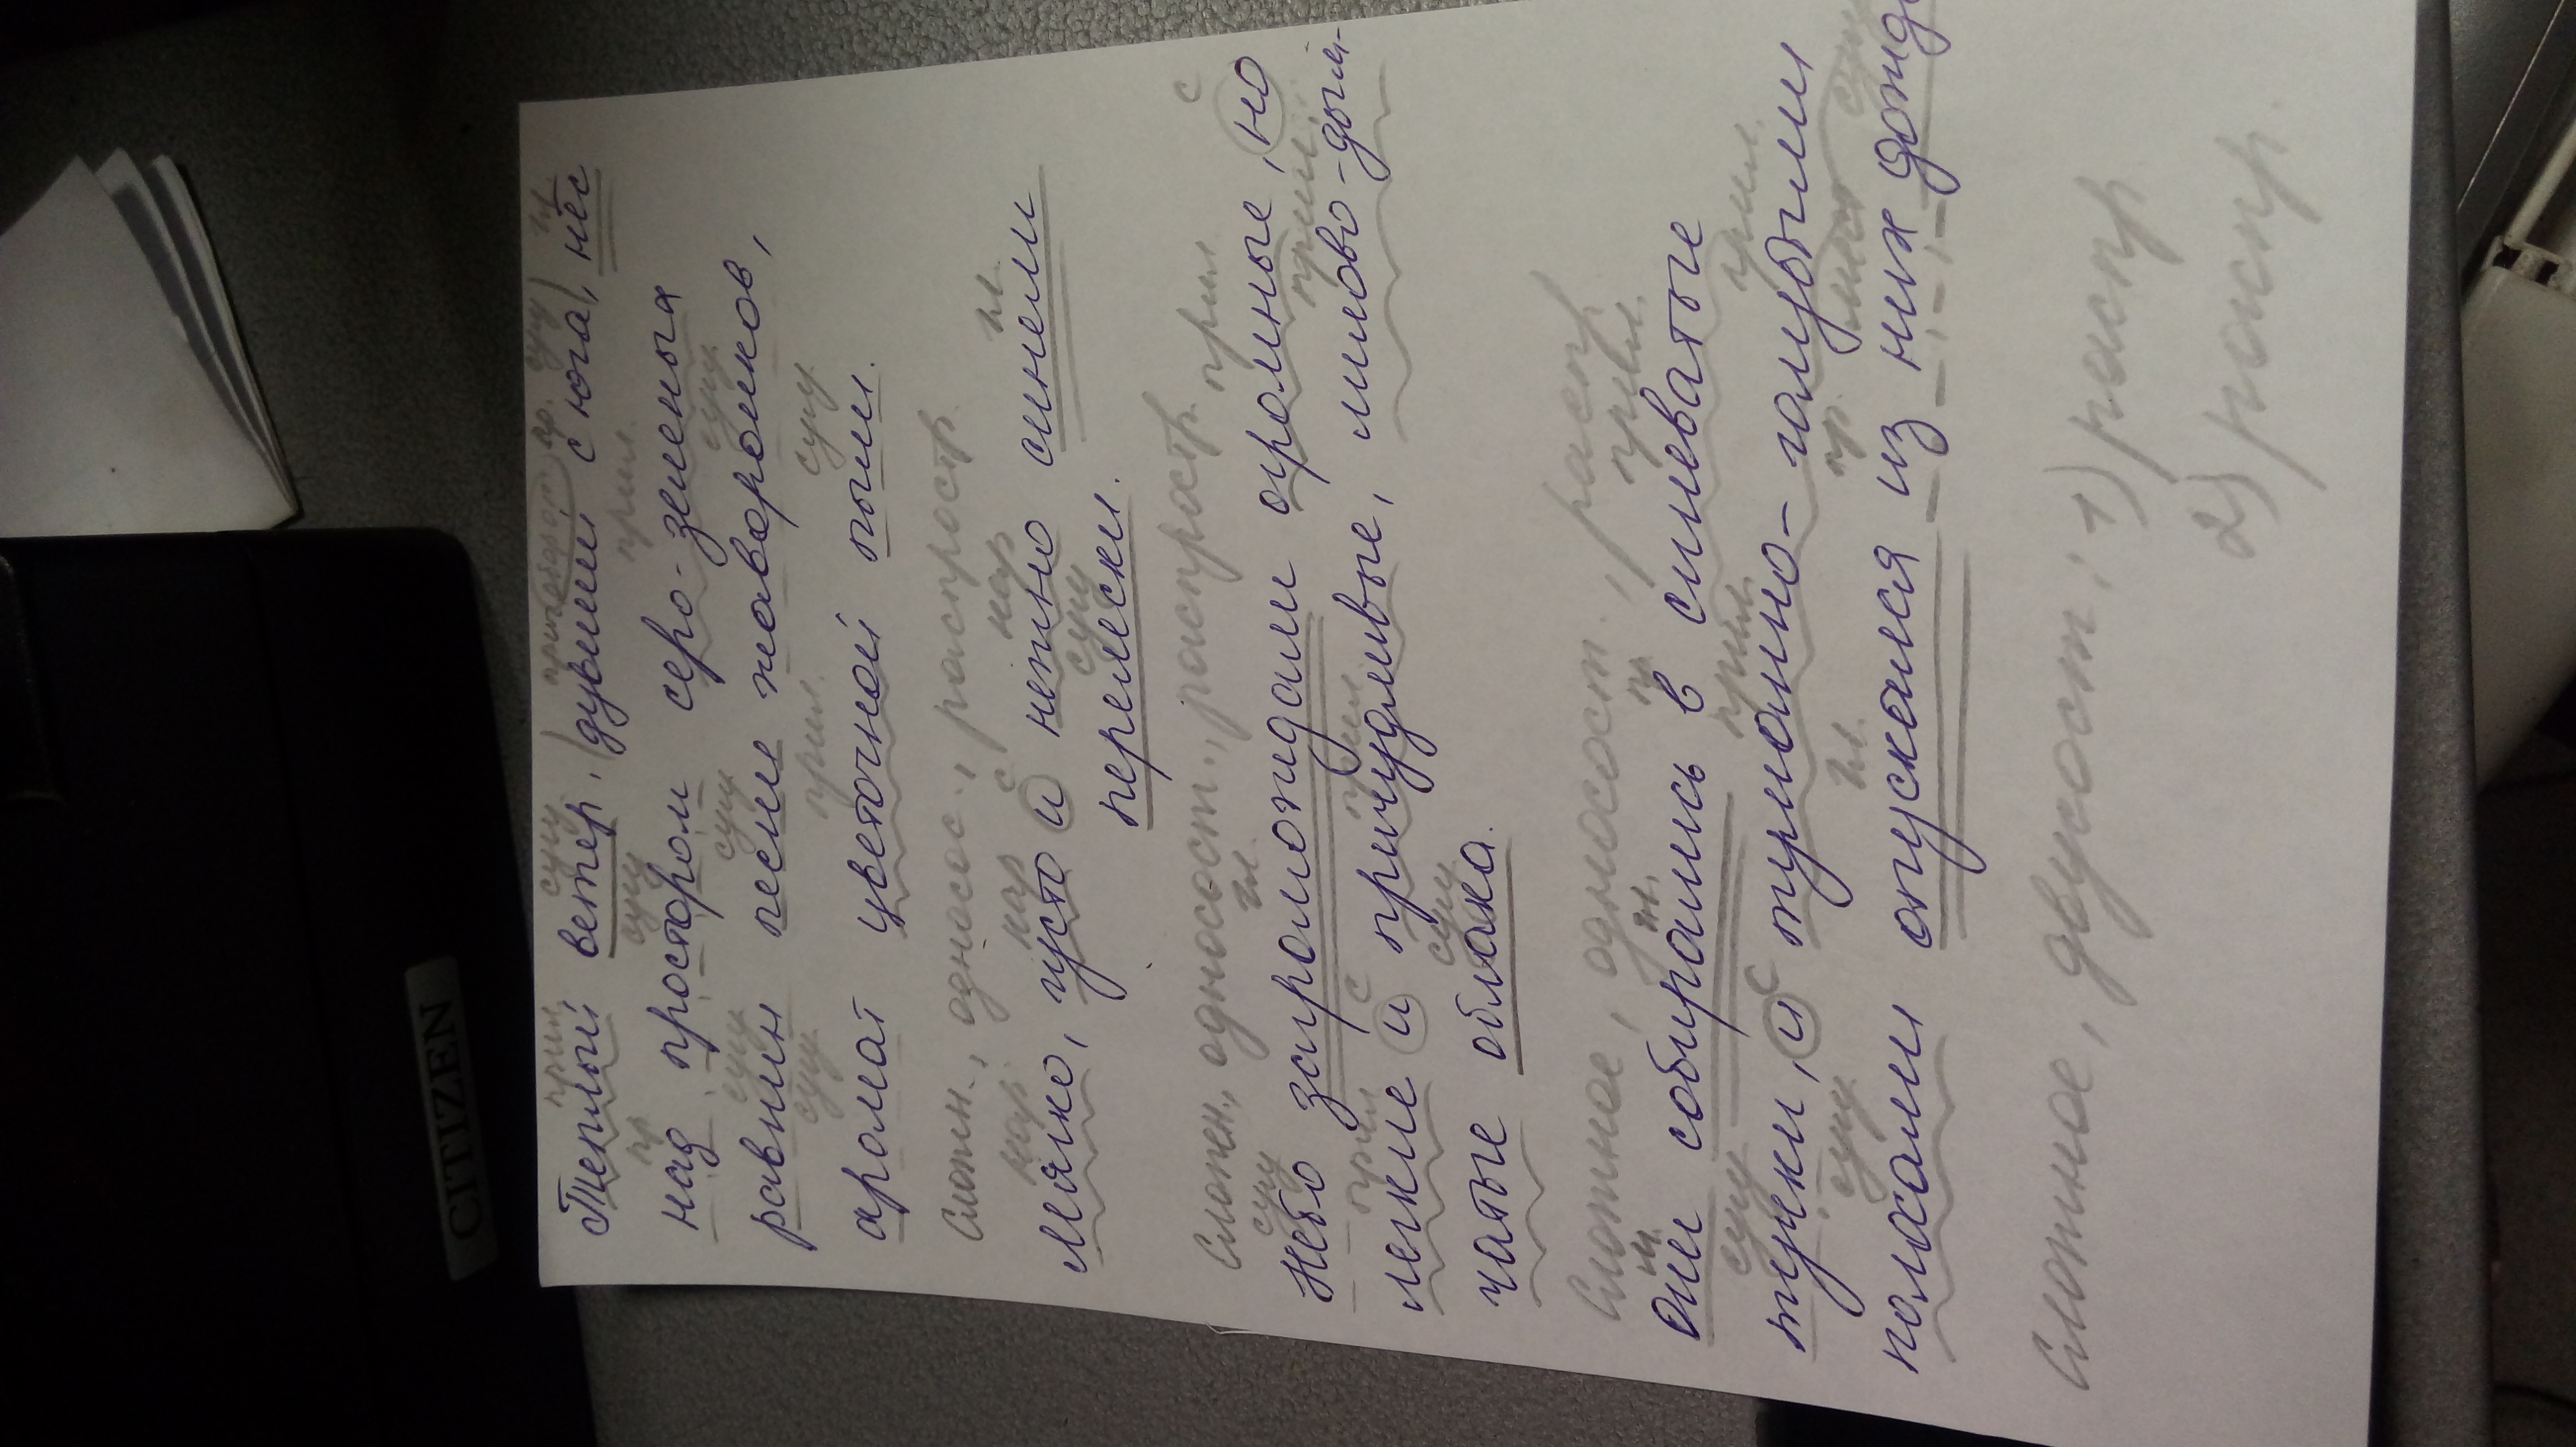 прил сущ причастие пр. сущ гл
Теплый ветер, дувший с юга, нёс
пр сущ прил.
над простором серо-зеленых
сущ сущ сущ
равнин песни жаворонков,
сущ прил. сущ
аромат цветочной пыли.
Сложн., односос., распростр.
нар нар с нар гл.
Мягко, густо и нежно синели
сущ
перелески.
Сложн., односост., распростр.
сущ гл. прил с
Небо загромождали огромные, но
прил с прил прил.
легкие и причудливые, лилово-дым-
сущ
чатые облака.
Сложное, односост., распр
м. гл. пр прил.
Они собирались в синеватые
сущ с прил. прил.
тучки, и туманно-голубыми
сущ гл. пр. сущ
полосами опускался из них дождь
Сложное, двусост.: 1) распр.
2) распр.
CITIZEN